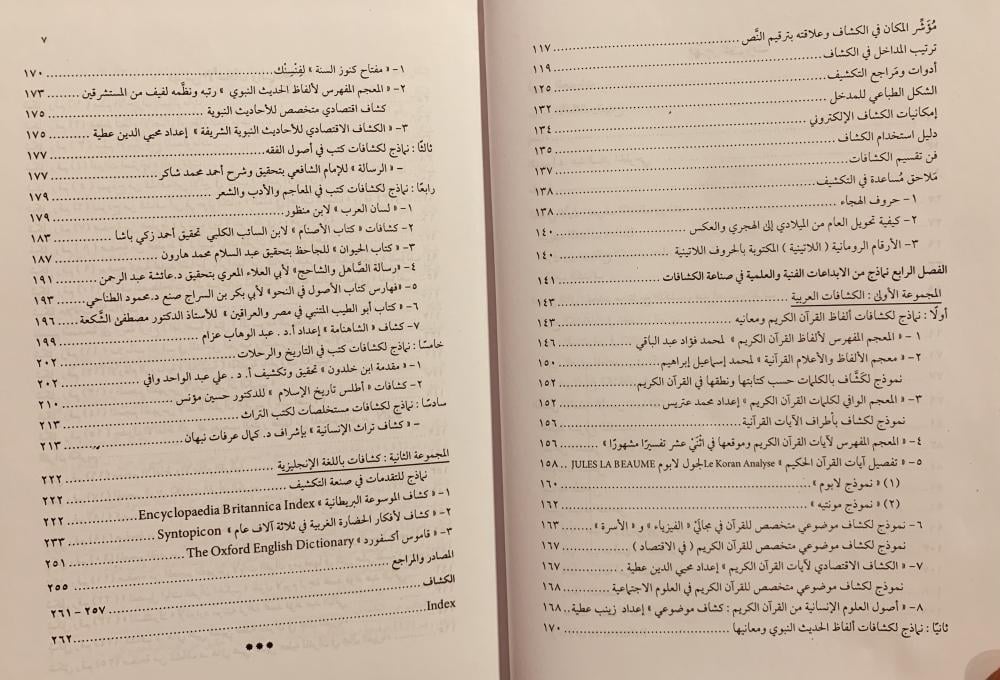 مُؤَشِّر المكان في الكشاف وعلاقته بترقيم النَّص ........ ١١٧
ترتيب المداخل في الكشاف ........ ١١٩
أدوات ومَراجع التكشيف ........ ١٢٥
الشكل الطباعي للمدخل ........ ١٣٢
إمكانيات الكشاف الإلكتروني ........ ١٣٤
دليل استخدام الكشاف ........ ١٣٥
فن تقسيم الكشافات ........ ١٣٧
مَلاحق مُساعدة في التكشيف ........ ١٣٨
١- حروف الهجاء ........ ١٣٨
٢- كيفية تحويل العام من الميلادي إلى الهجري والعكس ........ ١٤٠
٣- الأرقام الرومانية ( اللاتينية ) المكتوبة بالحروف اللاتينية ........ ١٤٠
الفصل الرابع نماذج من الابداعات الفنية والعلمية في صناعة الكشافات ........ ١٤١
المجموعة الأولى : الكشافات العربية ........ ١٤٣
أولًا : نماذج لكشافات ألفاظ القرآن الكريم ومعانيه ........ ١٤٣
١- « المعجم المفهرس لألفاظ القرآن الكريم » لمحمد فؤاد عبد الباقي ........ ١٤٦
٢- « معجم الألفاظ والأعلام القرآنية » لمحمد إسماعيل إبراهيم ........ ١٥٠
نموذج لكَشَّاف بالكلمات حسب كتابتها ونطقها في القرآن الكريم ........ ١٥٢
٣- « المعجم الوافي لكلمات القرآن الكريم » إعداد محمد عتريس ........ ١٥٢
نموذج لكشاف بأطراف الآيات القرآنية ........ ١٥٦
٤- « المعجم المفهرس لآيات القرآن الكريم وموقعها في اثْنَيْ عشر تفسيرًا مشهورًا » ........ ١٥٦
٥- « تفصيل آيات القرآن الحكيم » Le Koran Analyse لجول لابوم JULES LA BEAUME .. ١٥٨
(١) « نموذج لابوم » ........ ١٦٠
(٢) « نموذج مونتيه » ........ ١٦٢
٦- نموذج لكشاف موضوعي متخصص للقرآن في مجاليْ « الفيزياء » و « الأسرة » ........ ١٦٣
نموذج لكشاف موضوعي متخصص للقرآن الكريم ( في الاقتصاد ) ........ ١٦٧
٧- « الكشاف الاقتصادي لآيات القرآن الكريم » إعداد محيي الدين عطية . ........ ١٦٧
نموذج لكشاف موضوعي متخصص للقرآن الكريم في العلوم الاجتماعية ........ ١٦٨
٨- « أصول العلوم الإنسانية من القرآن الكريم : كشاف موضوعي » إعداد زينب عطية .. ١٦٨
ثانيًا : نماذج لكشافات ألفاظ الحديث النبوي ومعانيها ........ ١٧٠
٧
١- « مفتاح كنوز السنة » لفِنْسِنْك ........ ١٧٠
٢- « المعجم المفهرس لألفاظ الحديث النبوي » رتبه ونظَّمه لفيف من المستشرقين ........ ١٧٣
كشاف اقتصادي متخصص للأحاديث النبوية ........ ١٧٥
٣- « الكشاف الاقتصادي للأحاديث النبوية الشريفة » إعداد محيي الدين عطية ........ ١٧٥
ثالثًا : نماذج لكشافات كتب في أصول الفقه ........ ١٧٧
– « الرسالة » للإمام الشافعي بتحقيق وشرح أحمد محمد شاكر ........ ١٧٧
رابعًا : نماذج لكشافات كتب في المعاجم والأدب والشعر ........ ١٧٩
١- « لسان العرب » لابن منظور ........ ١٧٩
٢- كشافات « كتاب الأصنام » لابن السائب الكلبي تحقيق أحمد زكي باشا ........ ١٨٣
٣- « كتاب الحيوان » للجاحظ بتحقيق عبد السلام محمد هارون ........ ١٨٧
٤- «رسالة الصَّاهل والشاحج» لأبي العلاء المعري بتحقيق د.عائشة عبد الرحمن ........ ١٩١
٥- «فهارس كتاب الأصول في النحو» لأبي بكر بن السراج صنع د.محمود الطناحي ........ ١٩٣
٦- « كتاب أبو الطيب المتنبي في مصر والعراقين » للأستاذ الدكتور مصطفى الشَّكعة ........ ١٩٦
٧- كشاف « الشاهنامة » إعداد أ.د . عبد الوهاب عزام ........ ١٩٩
خامسًا : نماذج لكشافات كتب في التاريخ والرحلات ........ ٢٠٢
١- « مقدمة ابن خلدون » تحقيق وتكشيف أ. د . علي عبد الواحد وافي ........ ٢٠٢
٢- كشافات « أطلس تاريخ الإسلام » للدكتور حسين مؤنس ........ ٢١٠
سادسًا : نماذج لكشافات مستخلصات لكتب التراث ........ ٢١٣
– « كشاف تراث الإنسانية » بإشراف د. كمال عرفات نبهان ........ ٢١٣
المجموعة الثانية : كشافات باللغة الإنجليزية ........ ٢٢٢
نماذج للتقدمات في صنعة التكشيف ........ ٢٢٢
١- « كشاف الموسوعة البريطانية » Encyclopaedia Britannica Index ........ ٢٢٢
٢- « كشاف لأفكار الحضارة الغربية في ثلاثة آلاف عام » Syntopicon ........ ٢٣٣
٣- « قاموس أكسفورد » The Oxford English Dictionary ........ ٢٥١
المصادر والمراجع ........ ٢٥٥
الكشاف ........ ٢٥٧ – ٢٦١
Index ........ ٢٦٢
***